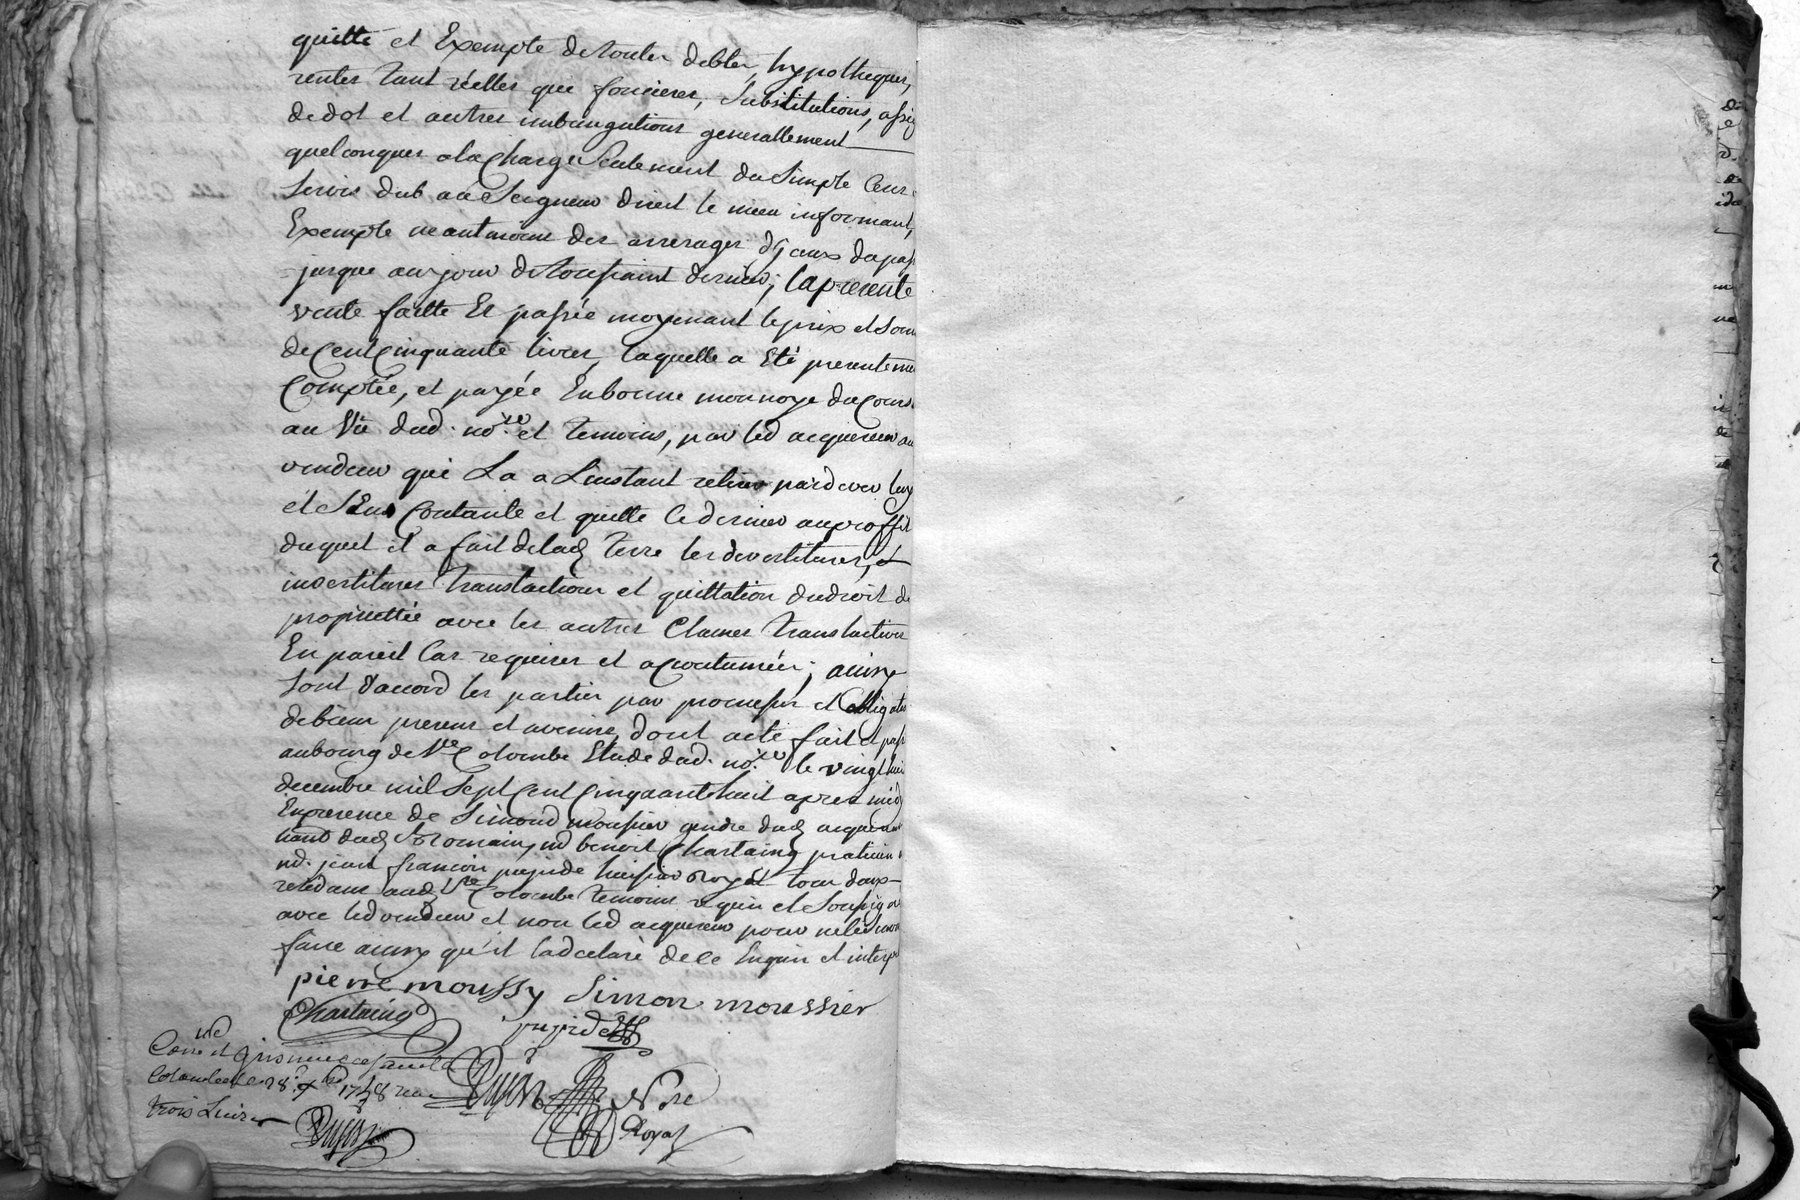 quitte et Exempte de toutes debtes, hypotheques,
rentes tant réelles que foncieres, Substitutions, assig
de dot et autres imbrigations generallement
quelconques a la Charge Seulement du Simple Cens
Servis dub au Seigneur direct le mieu informant,
Exempte neantmoins des arrerages d'yceux du passé
jusque au jour de toussaint dernier; la presente
vente faitte Et passée moyenant le prix et Som
de Cent Cinquante livres, laquelle a Eté presenteme
Comptée, et payée En bonne monnoye du Cours
au Vü dud. no.re et temoins, par led acquereur au
vendeur qui La a Linstant retiré pardevers luy
et S'En Contante et quitte ce dernier au proffit
duquel il a fait de lad. terre les devestitures, et
investitures translactions et quittation du droit de
propriettée avec les autres Clauses translatives
En pareil Cas requises et acoutumées; ainsy
Sont d'accord les parties par promesses et obligation
de biens presens et avenirs, dont acte fait et passé
au bourg de Ste Colombe Etude dud. no.re le vingt huit
decembre mil Sept Cent Cinquante huit apres midy
En presence de Simond moussier gendre dud. acquereur
dud. St Romain, md benoit Chartaing praticien
md. jean francois pupide huissier royal tous deux
residans aud. Ste Colombe temoins requis et Soussignés
avec led vendeur et non led acquereur pour ne le Scavoir
faire ainsy qu'il la declaré de ce Enquis et interpe
pierre moussy Simon moussier
Chartaing pupide
Con.lé et a Ste
Colombe le 28.e xbre 1758 reçu Dujas No.re
trois Livres Royal
Dujas